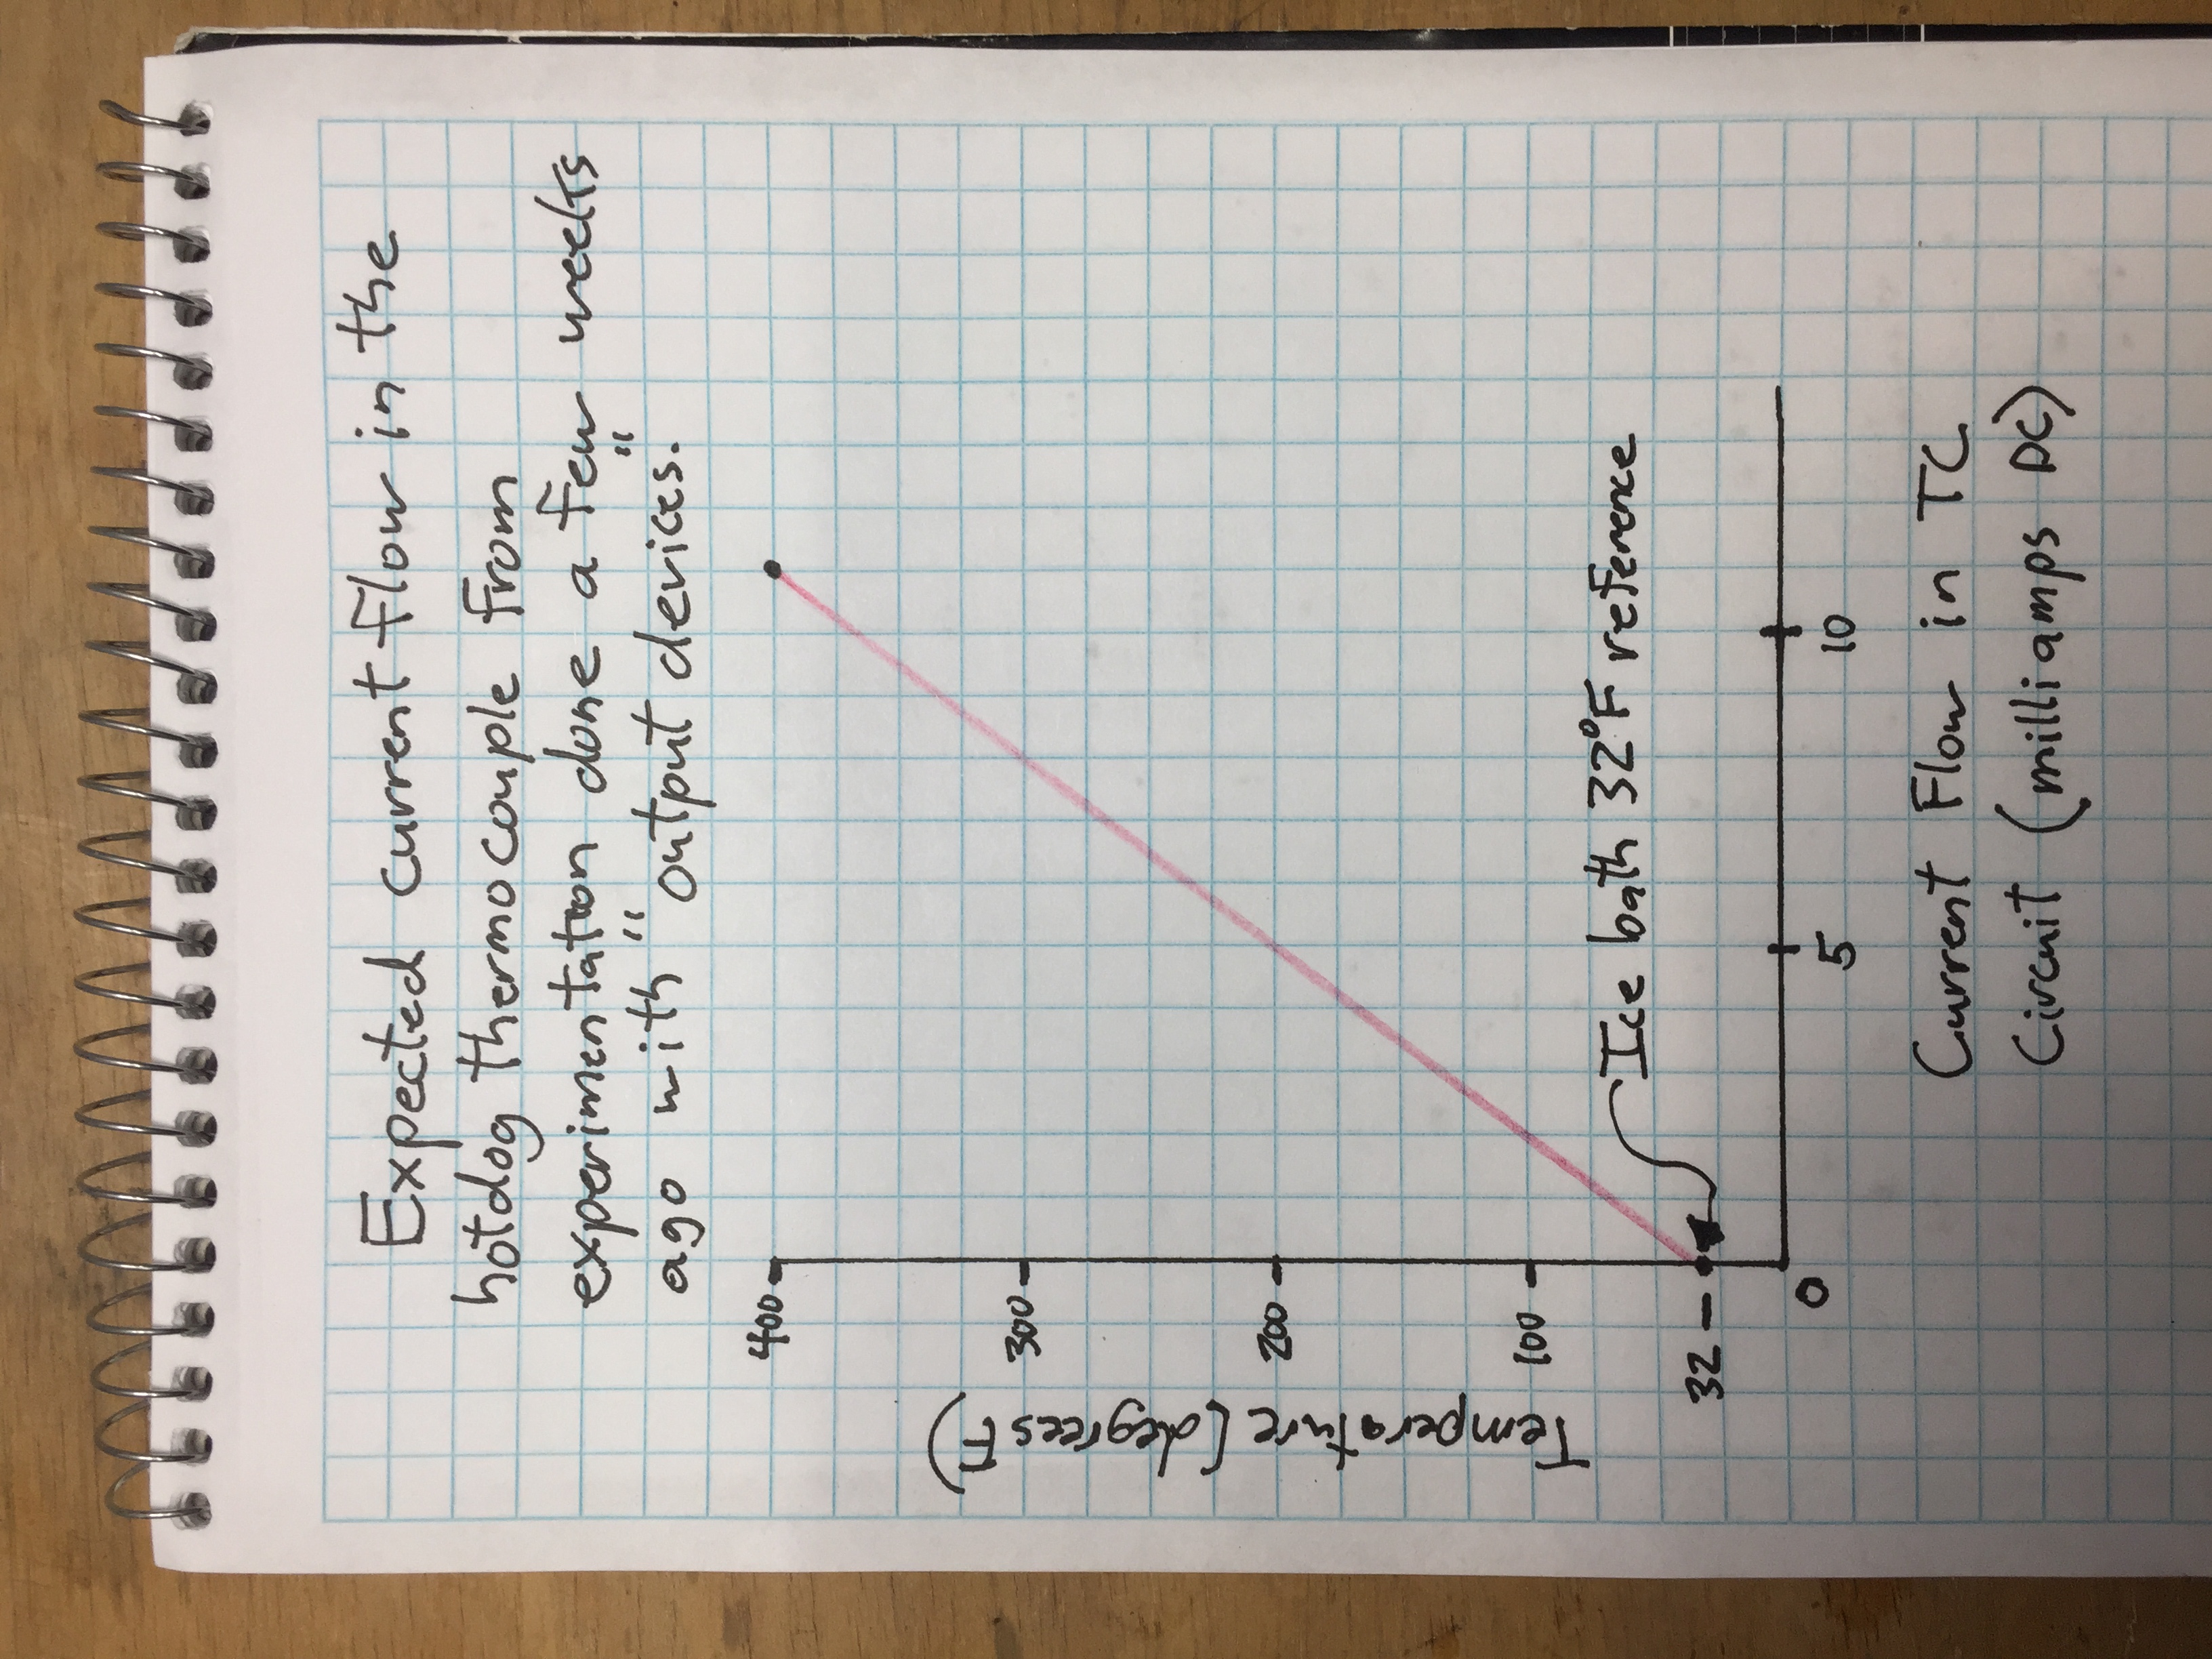 Expected current flow in the
hotdog thermocouple from
experimentation done a few weeks
ago with "output devices."
400
300
Temperature (degrees F)
200
100
Ice bath 32°F reference
32
0
5
10
Current Flow in TC
Circuit (milliamps DC)